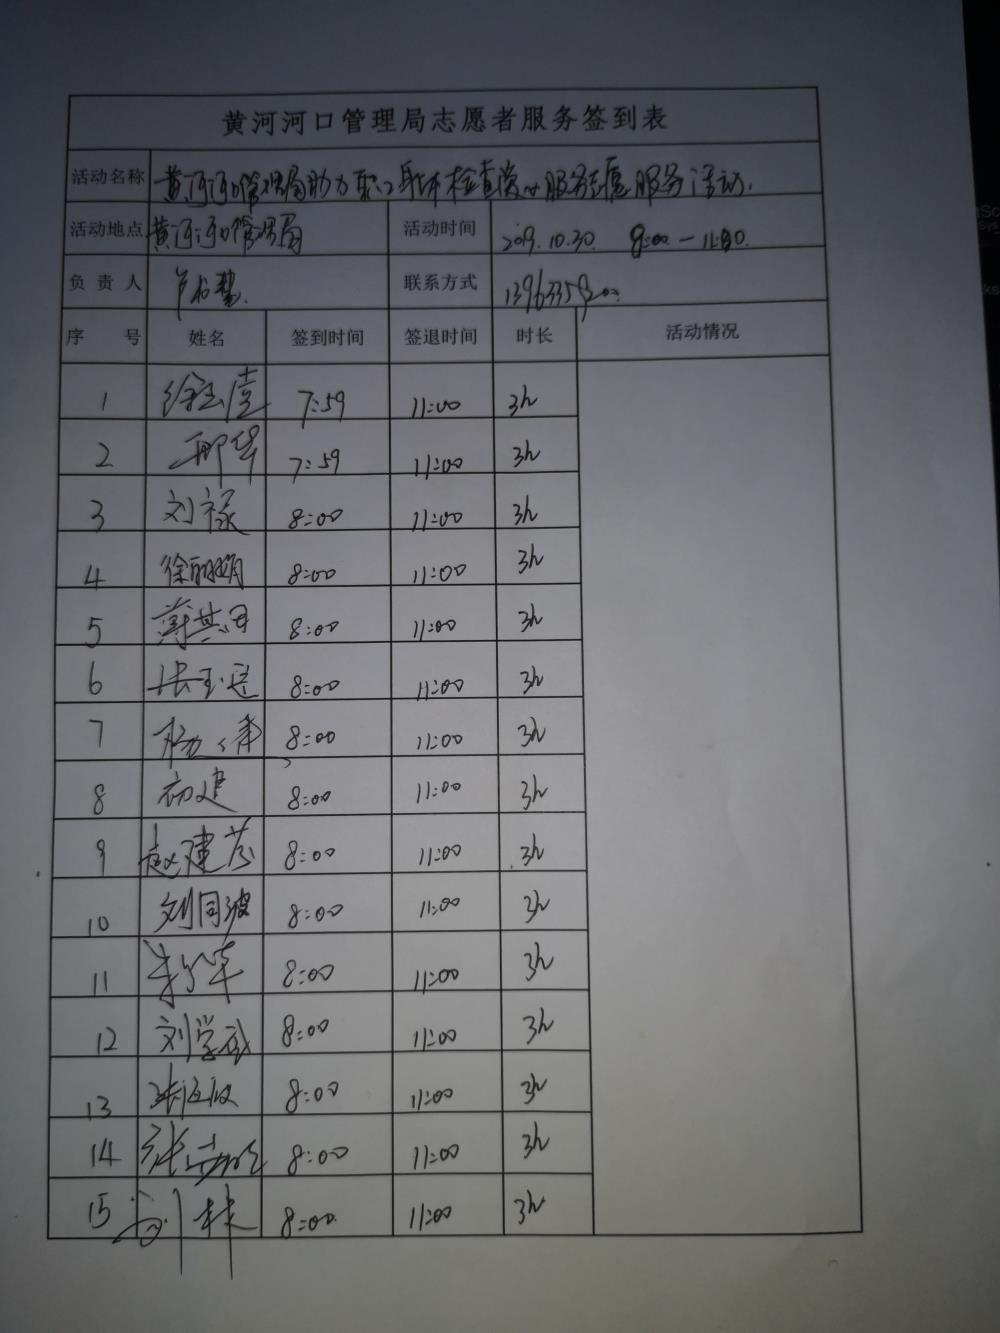 黄河河口管理局志愿者服务签到表
活动名称 黄河河口管理局助力职工身体检查 服务志愿服务活动.
活动地点 黄河河口管理局 活动时间 2019.10.30. 8:00-11:00.
负责人 联系方式
序号 姓名 签到时间 签退时间 时长 活动情况
1 7:59 11:00 3h
2 邢华 7:59 11:00 3h
3 刘禄 8:00 11:00 3h
4 徐丽娟 8:00 11:00 3h
5 薄其 8:00 11:00 3h
6 张玉 8:00 11:00 3h
7 杨 8:00 11:00 3h
8 初建 8:00 11:00 3h
9 赵建 8:00 11:00 3h
10 刘同波 8:00 11:00 3h
11 8:00 11:00 3h
12 刘学武 8:00 11:00 3h
13 8:00 11:00 3h
14 张 8:00 11:00 3h
15 林 8:00 11:00 3h